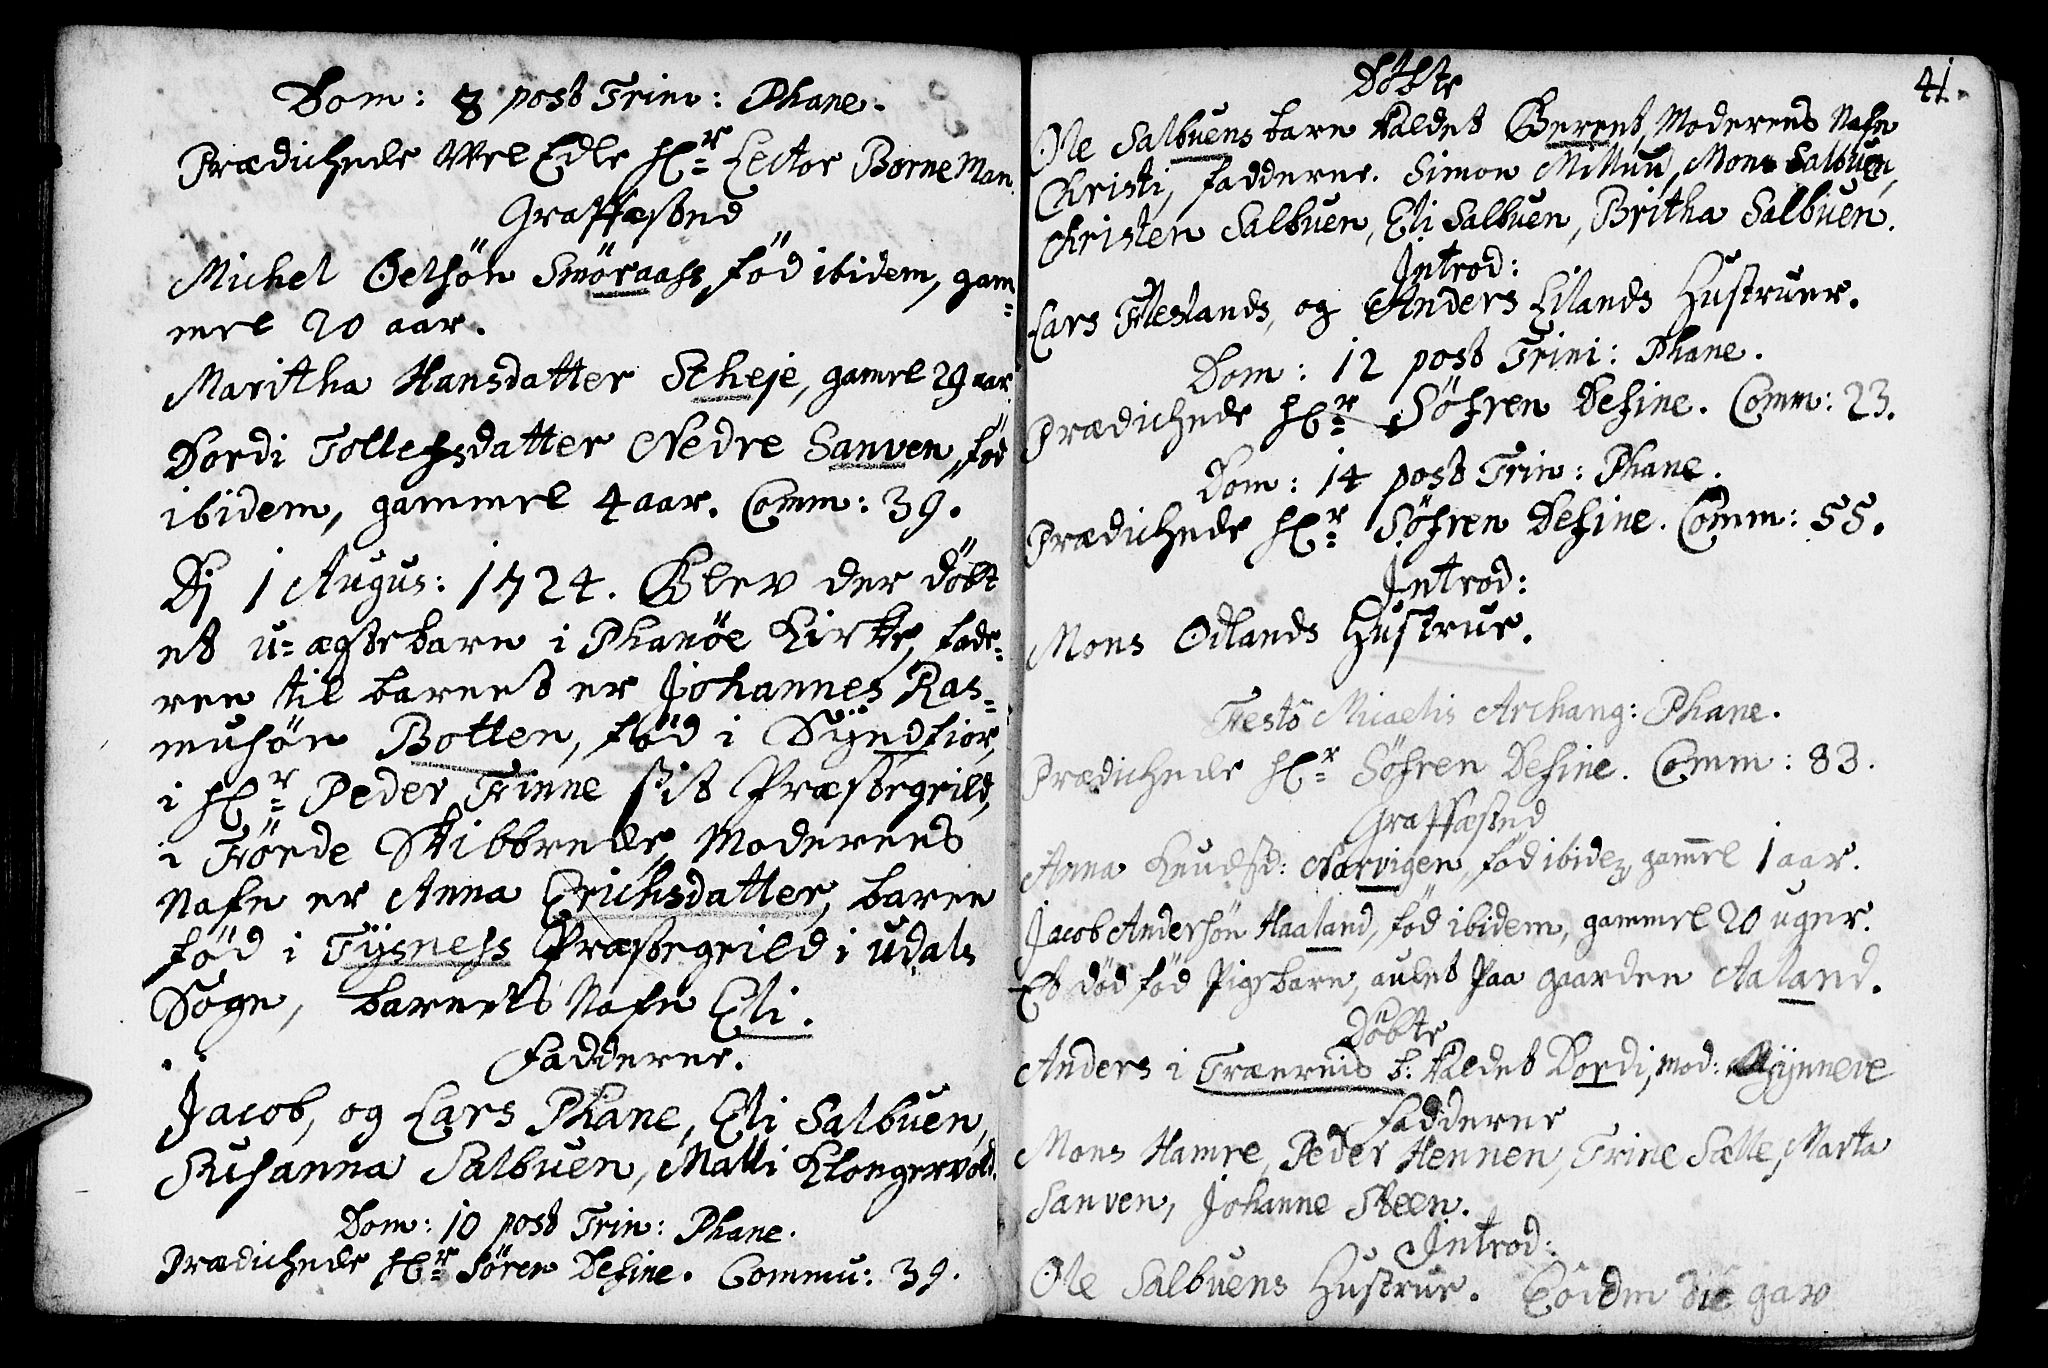 Dom: 8 post Trin: Phane.
Prædichede Wel Edle Hr: Lector Borneman.
Graffæsted
Michel Oelsön Smöraass, född ibidem, gam=
mel 20 aar.
Maritha Hansdatter Stheje, gamel 29 aar.
Dordi Tollefssdatter Nedre Sanven, föd
ibidem, gammel 4 aar. Comm: 39.
Dj 1 Augus: 1724. Blev der döbt
et u=ægte barn i Phanöe Kirke, fade=
ren til barnet er Johannes Ras=
musön Botten, föd i Syndfior,
i Hr: Peder Finne sit Præstegeild,
i Förde Skibbrede, Moderens
Nafn er Anna Erichsdatter, baaren
föd i Tysness Præstegeild i Udals
Sogn, barnets Nafn Eli.
Fadderne.
Jacob, og Lars Phane, Eli Salbuen,
Susanna Salbuen, Malli Klongervold.
Dom: 10 post Trin: Phane.
Prædichede Hr: Sören Define. Commu: 39.
41.
Döbte
Ole Salbuens barn kaldet Berent, Moderens Nafn
Christi, fadderne. Simon Milluu, Mons Salbuen,
Christen Salbuen, Eli Salbuen, Britha Salbuen.
Introd:
Lars Fleslands, og Anders Lilands Hustruer.
Dom: 12 post Trini: Phane.
Prædichede Hr: Söfren Define. Comm: 23.
Dom: 14 post Trin: Phane.
Prædichede Hr: Söfren Define. Comm: 55.
Introd:
Mons Ödlands Hustrue.
Festo Micaelis Archang: Phane.
Prædichede Hr: Söfren Define. Comm: 83.
Graffæsted
Anna Knudsd: Norvigen, föd ibidem gamel 1 aar.
Jacob Andersön Haaland, föd ibidem, gammel 20 uger.
Et död föd Pigebarn, aulet paa gaarden Aaland.
Döbte
Anders i Træernis b: kaldet Dordi, mod: Gynnere
Fadderne
Mons Hamre, Peder Hennen, Trine Sælle, Marta
Sanven, Johanne Steen.
Introd:
Ole Salbuens Hustrue. die gav